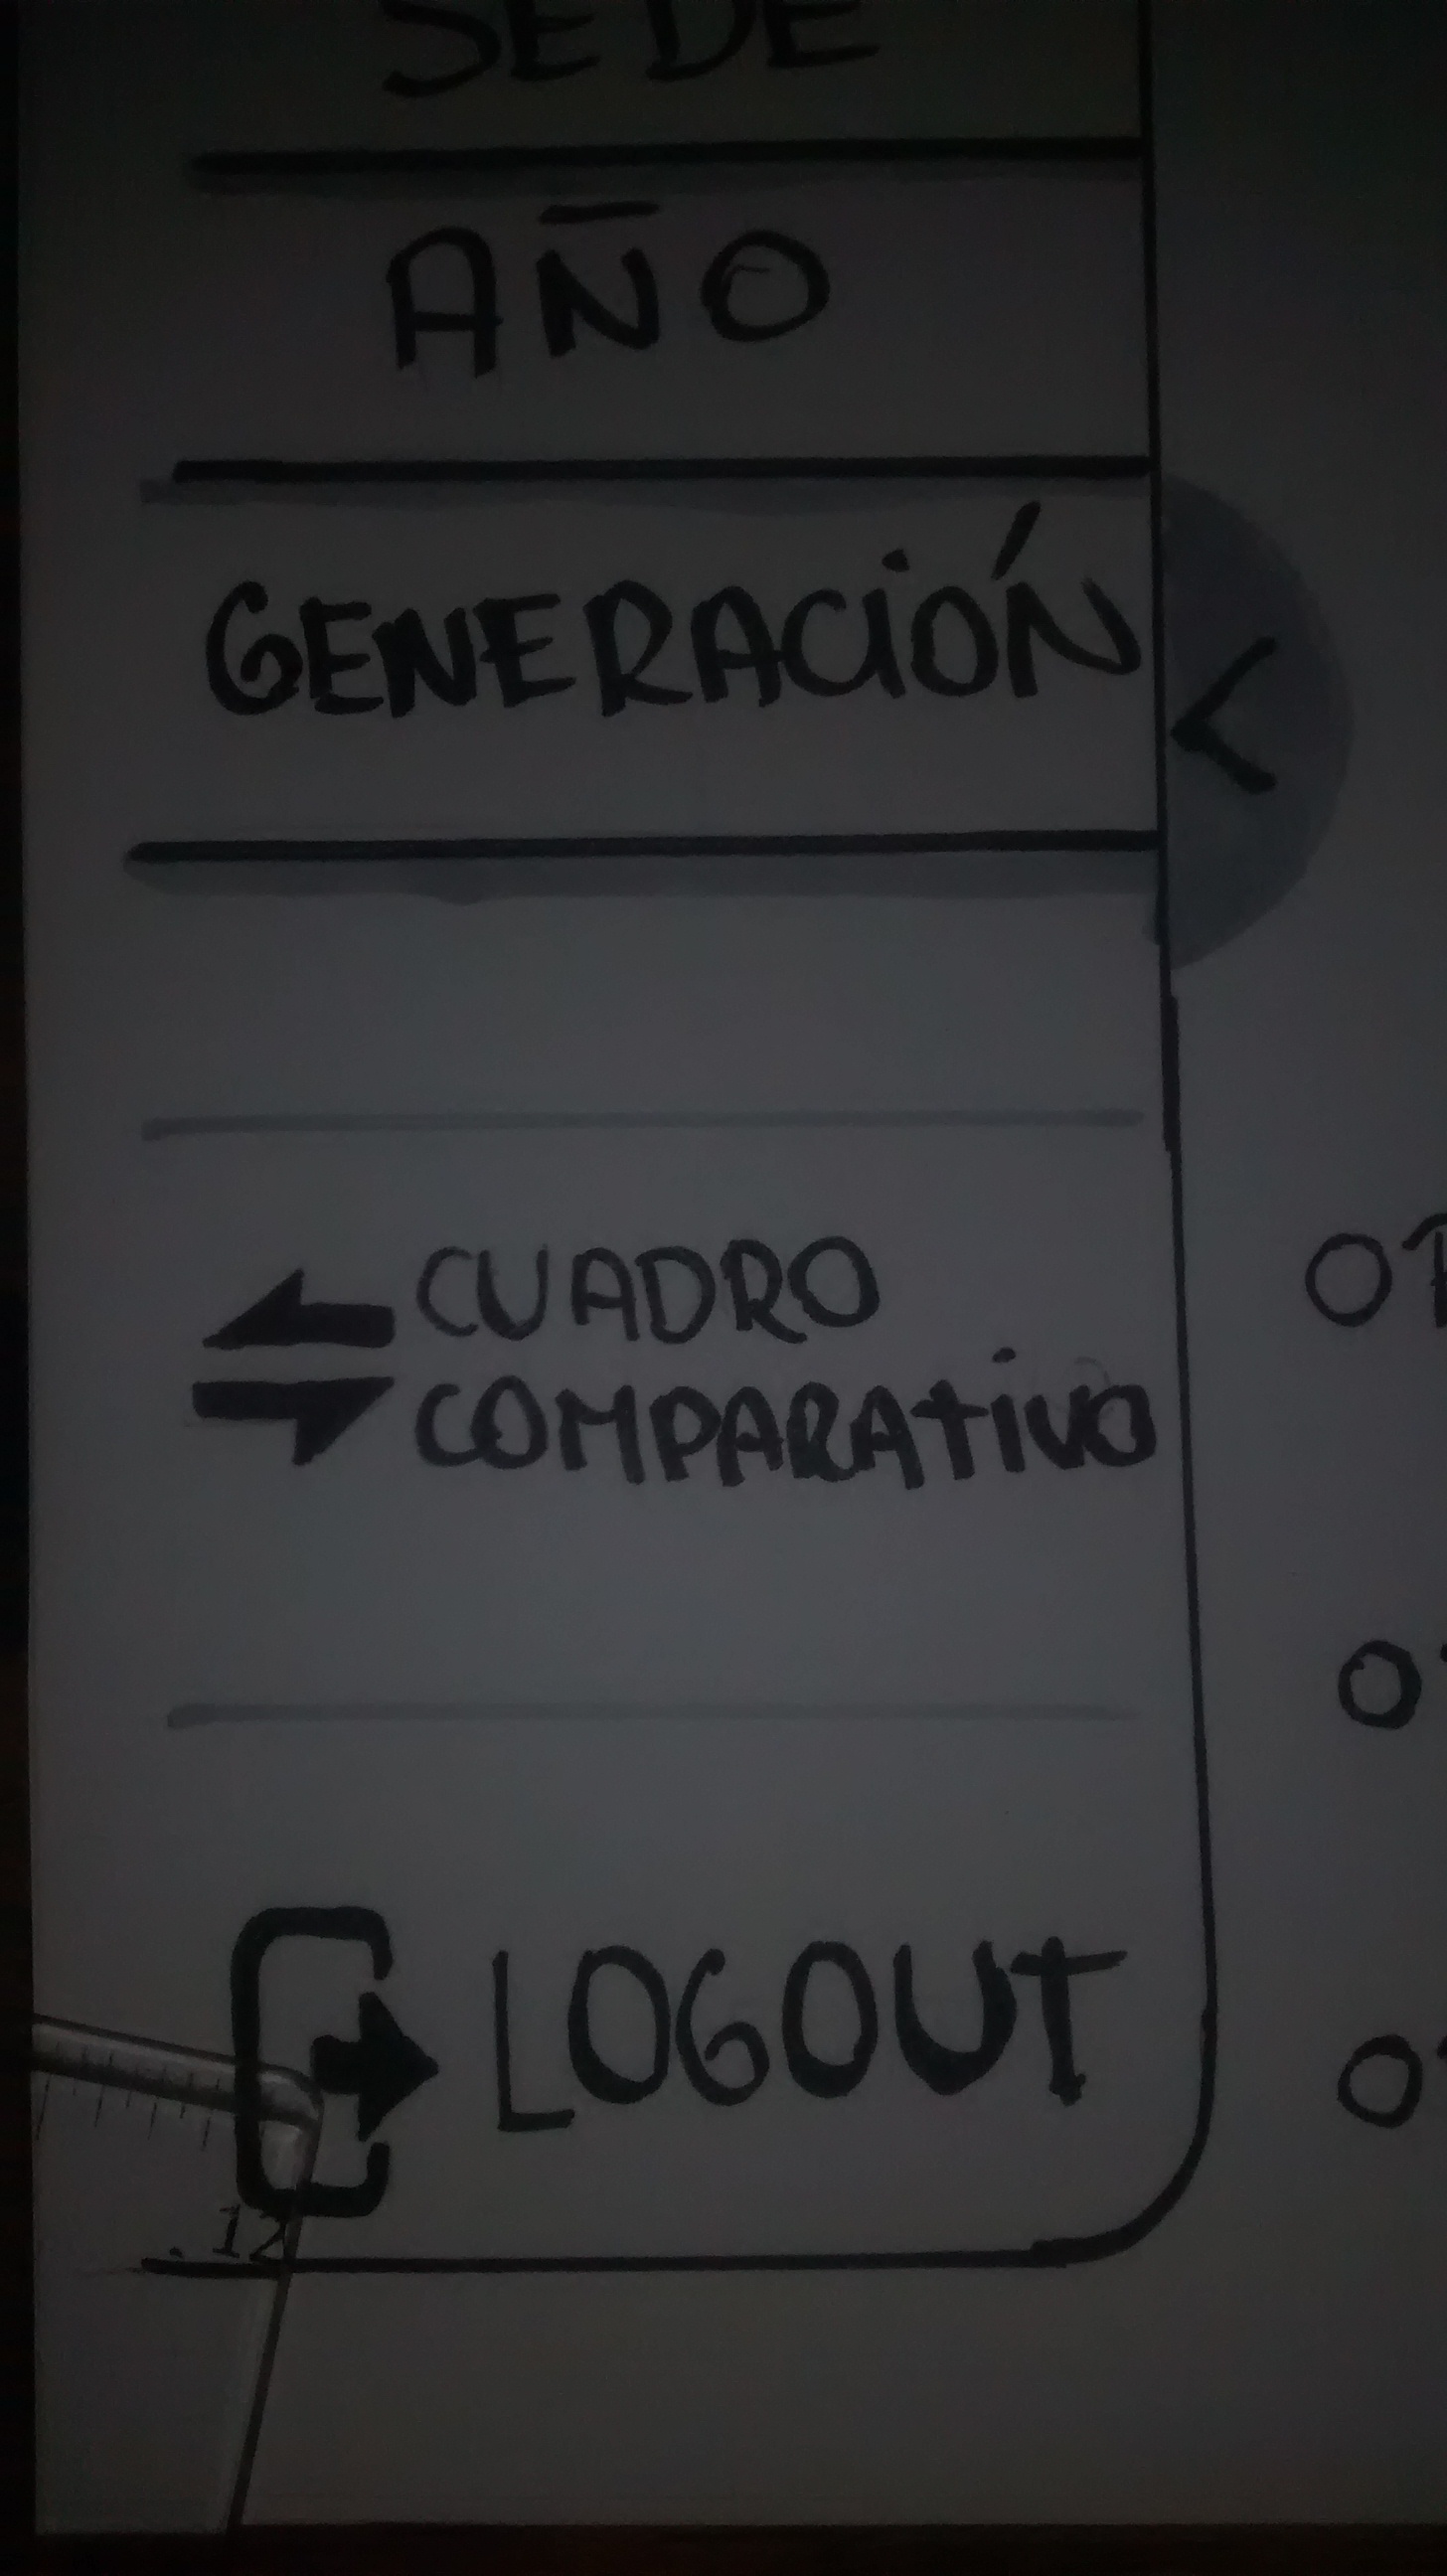 SEDE
AÑO
GENERACIÓN
<
CUADRO
COMPARATIVO
LOGOUT
.12